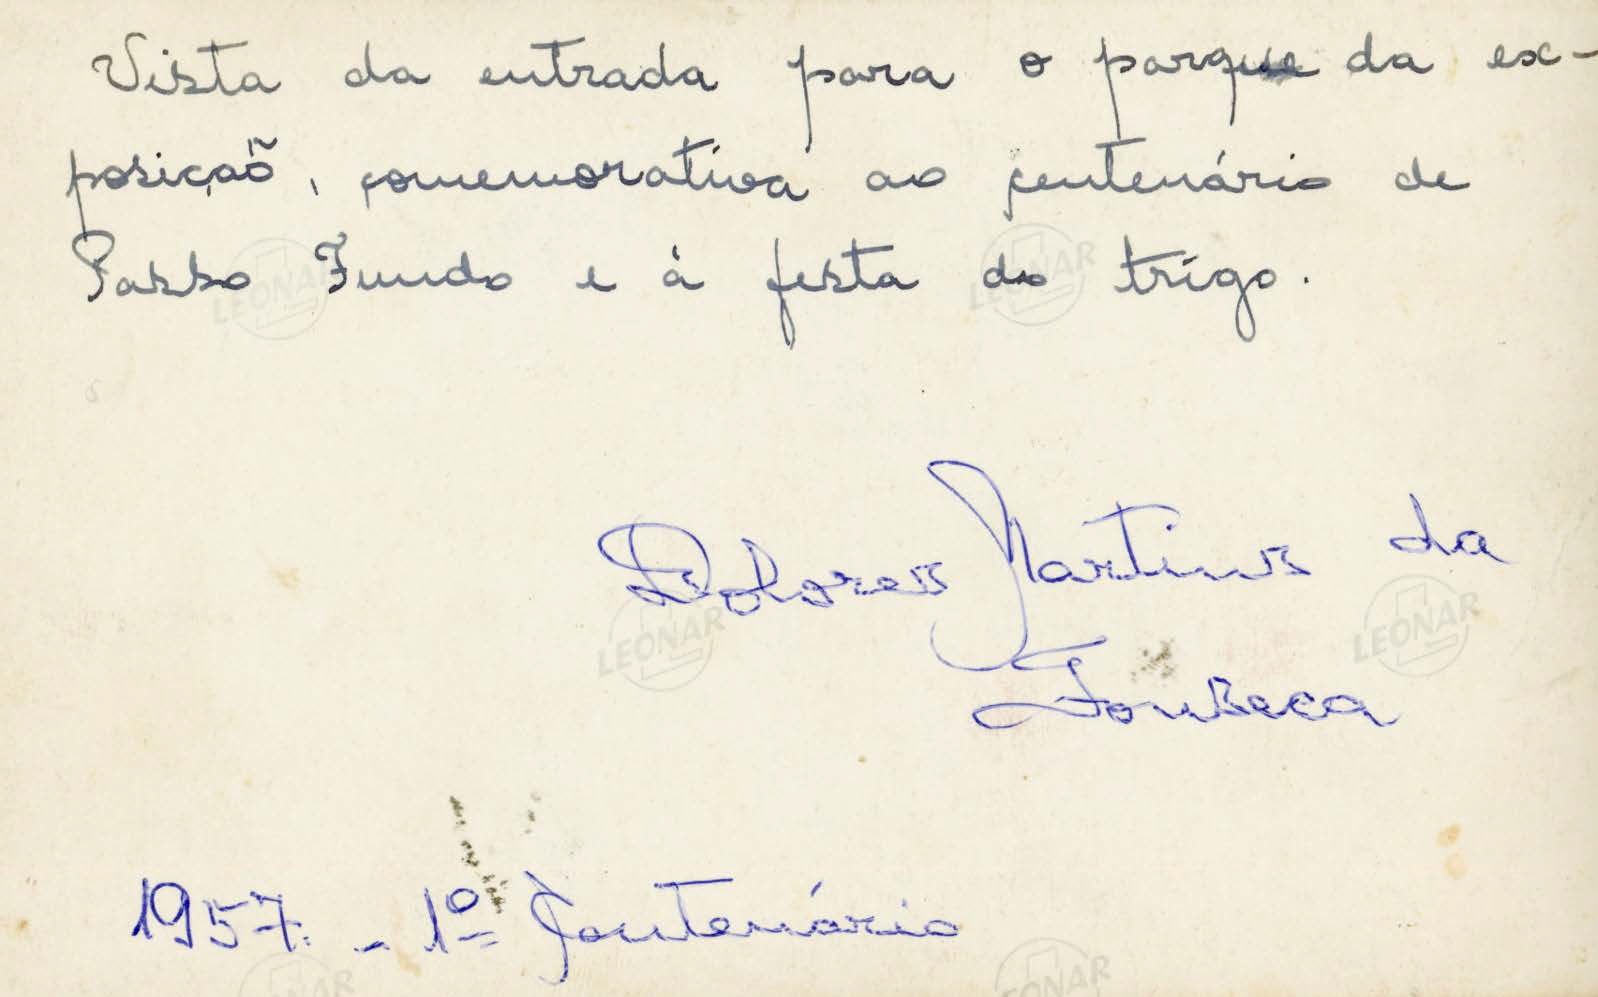 Vista da entrada para o parque da ex-
posição, comemorativa ao centenário de
Passo Fundo e à festa do trigo.
LEONAR
LEONAR
Dolores Martins da
LEONAR
LEONAR
Fonseca
1957. - 1º Centenário
LEONAR
LEONAR